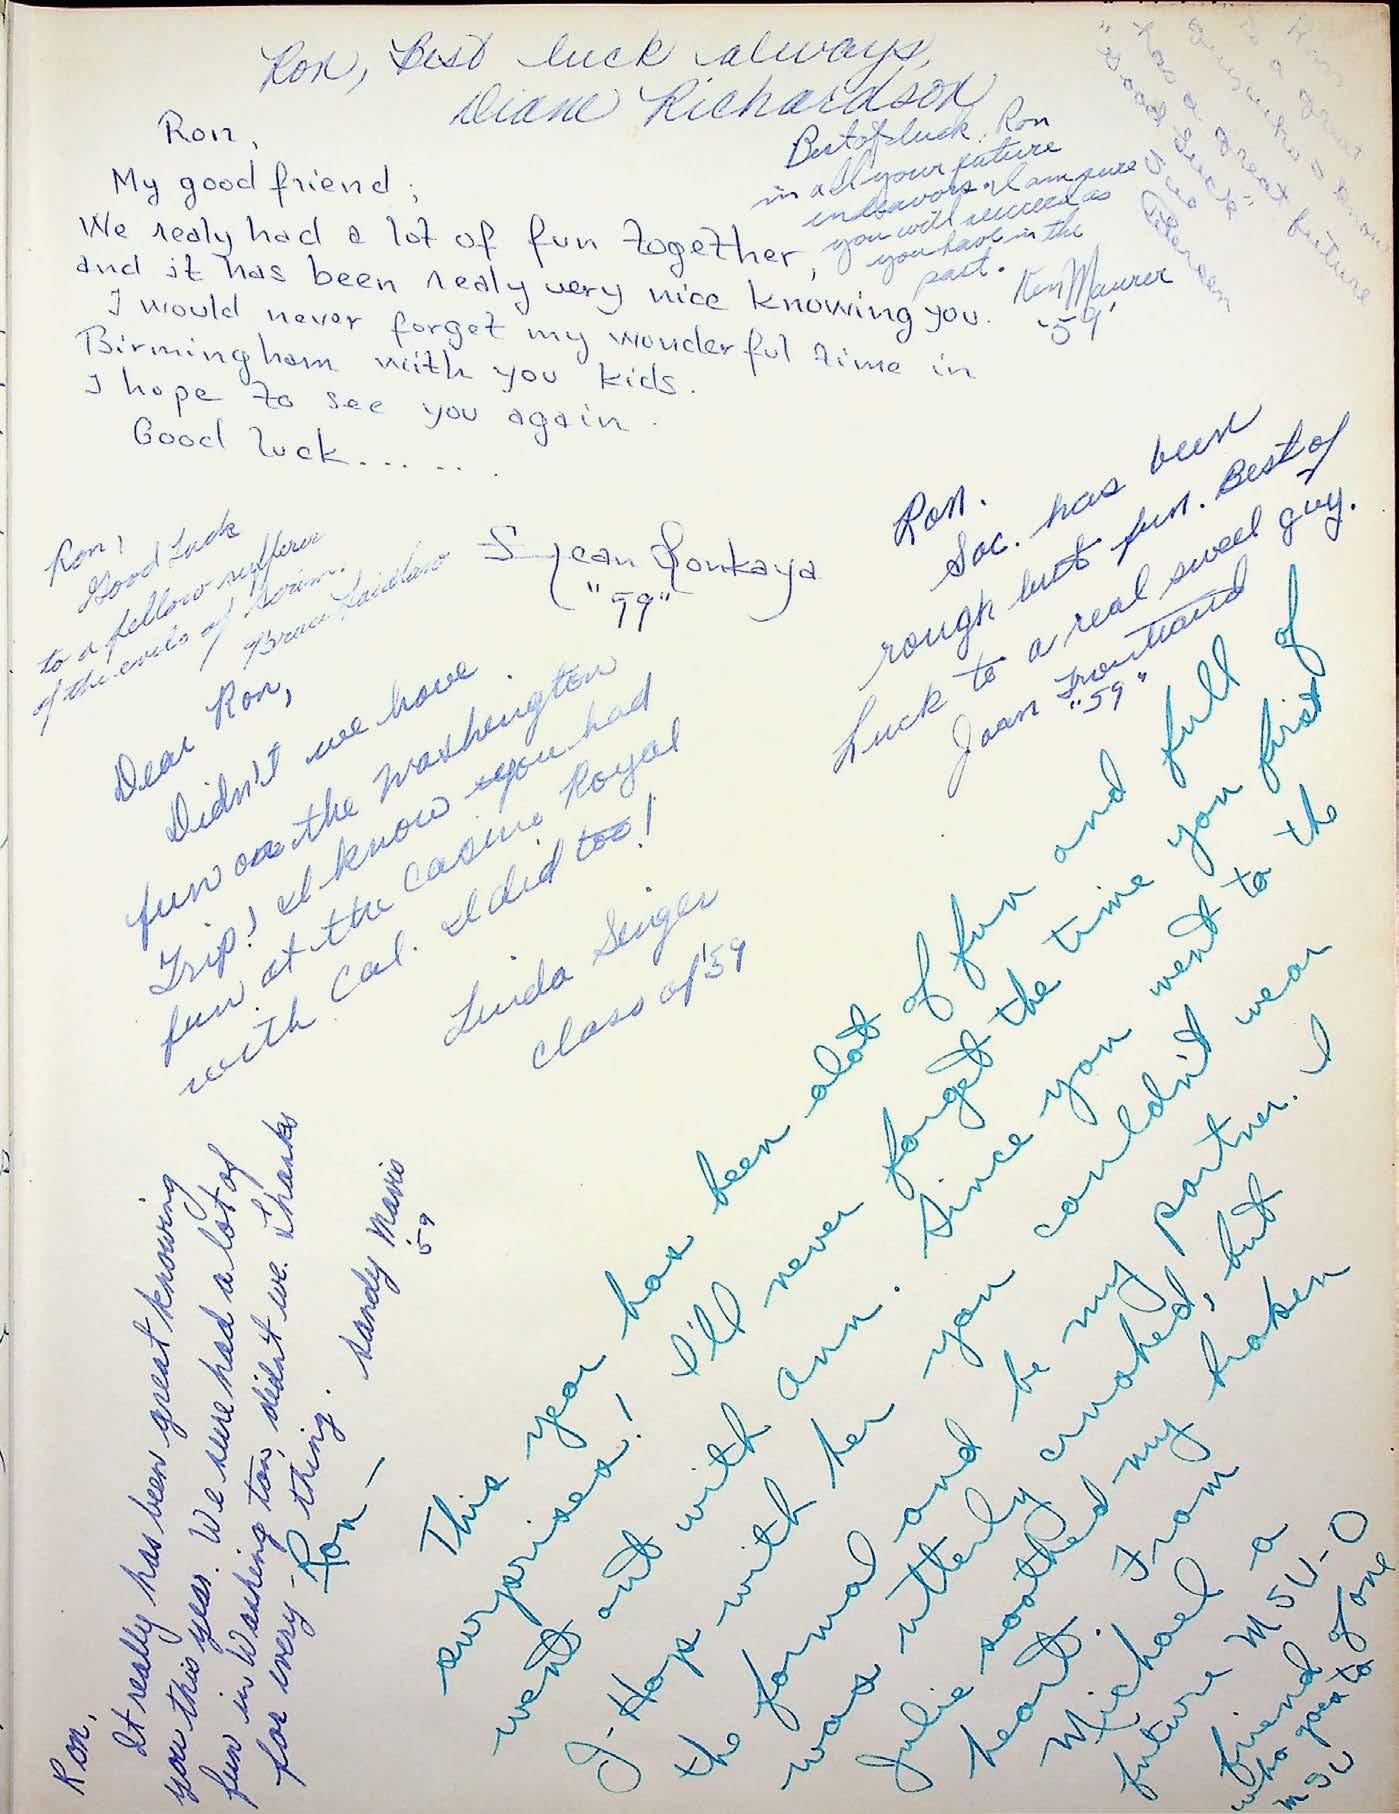 Ron, Best luck always,
Diane Richardson
Ron,
My good friend;
We realy had a lot of fun together,
and it has been realy very nice knowing you.
I would never forget my wonderful time in
Birmingham with you kids.
I hope to see you again.
Good luck.......
"59"
Best of luck, Ron
in all your future
endeavors. I am sure
you will succeed as
you have in the
past.
Ken Maurer
'59'
Ron
To a great
guy who's
has a great future
"Good Luck"
Sue
Ron.
Soc. has been
rough but fun. Best of
Luck to a real sweet guy.
Joan
"59"
Ron,
Good Luck
to a fellow sufferer
of the evils of
Bruce Laidlaw
Dear Ron,
Didn't we have
fun on the Washington
Trip! I know you had
fun at the Casino Royal
with Cal. I did too!
Linda Seiger
Class of '59
Ron,
It really has been great knowing
you this year. We sure had a lot of
fun in Washington, didn't we. Thanks
for every-thing.
Sandy
59
Ron—
This year has been alot of fun and full of
surprises! I'll never forget the time you first
went out with Ann. Since you went to the
J-Hop with her you couldn't wear
the formal and be my partner. I
was utterly crushed, but
Julie soothed my broken
heart. From
Michael a
future MSU-O
friend
who goes to
MSU